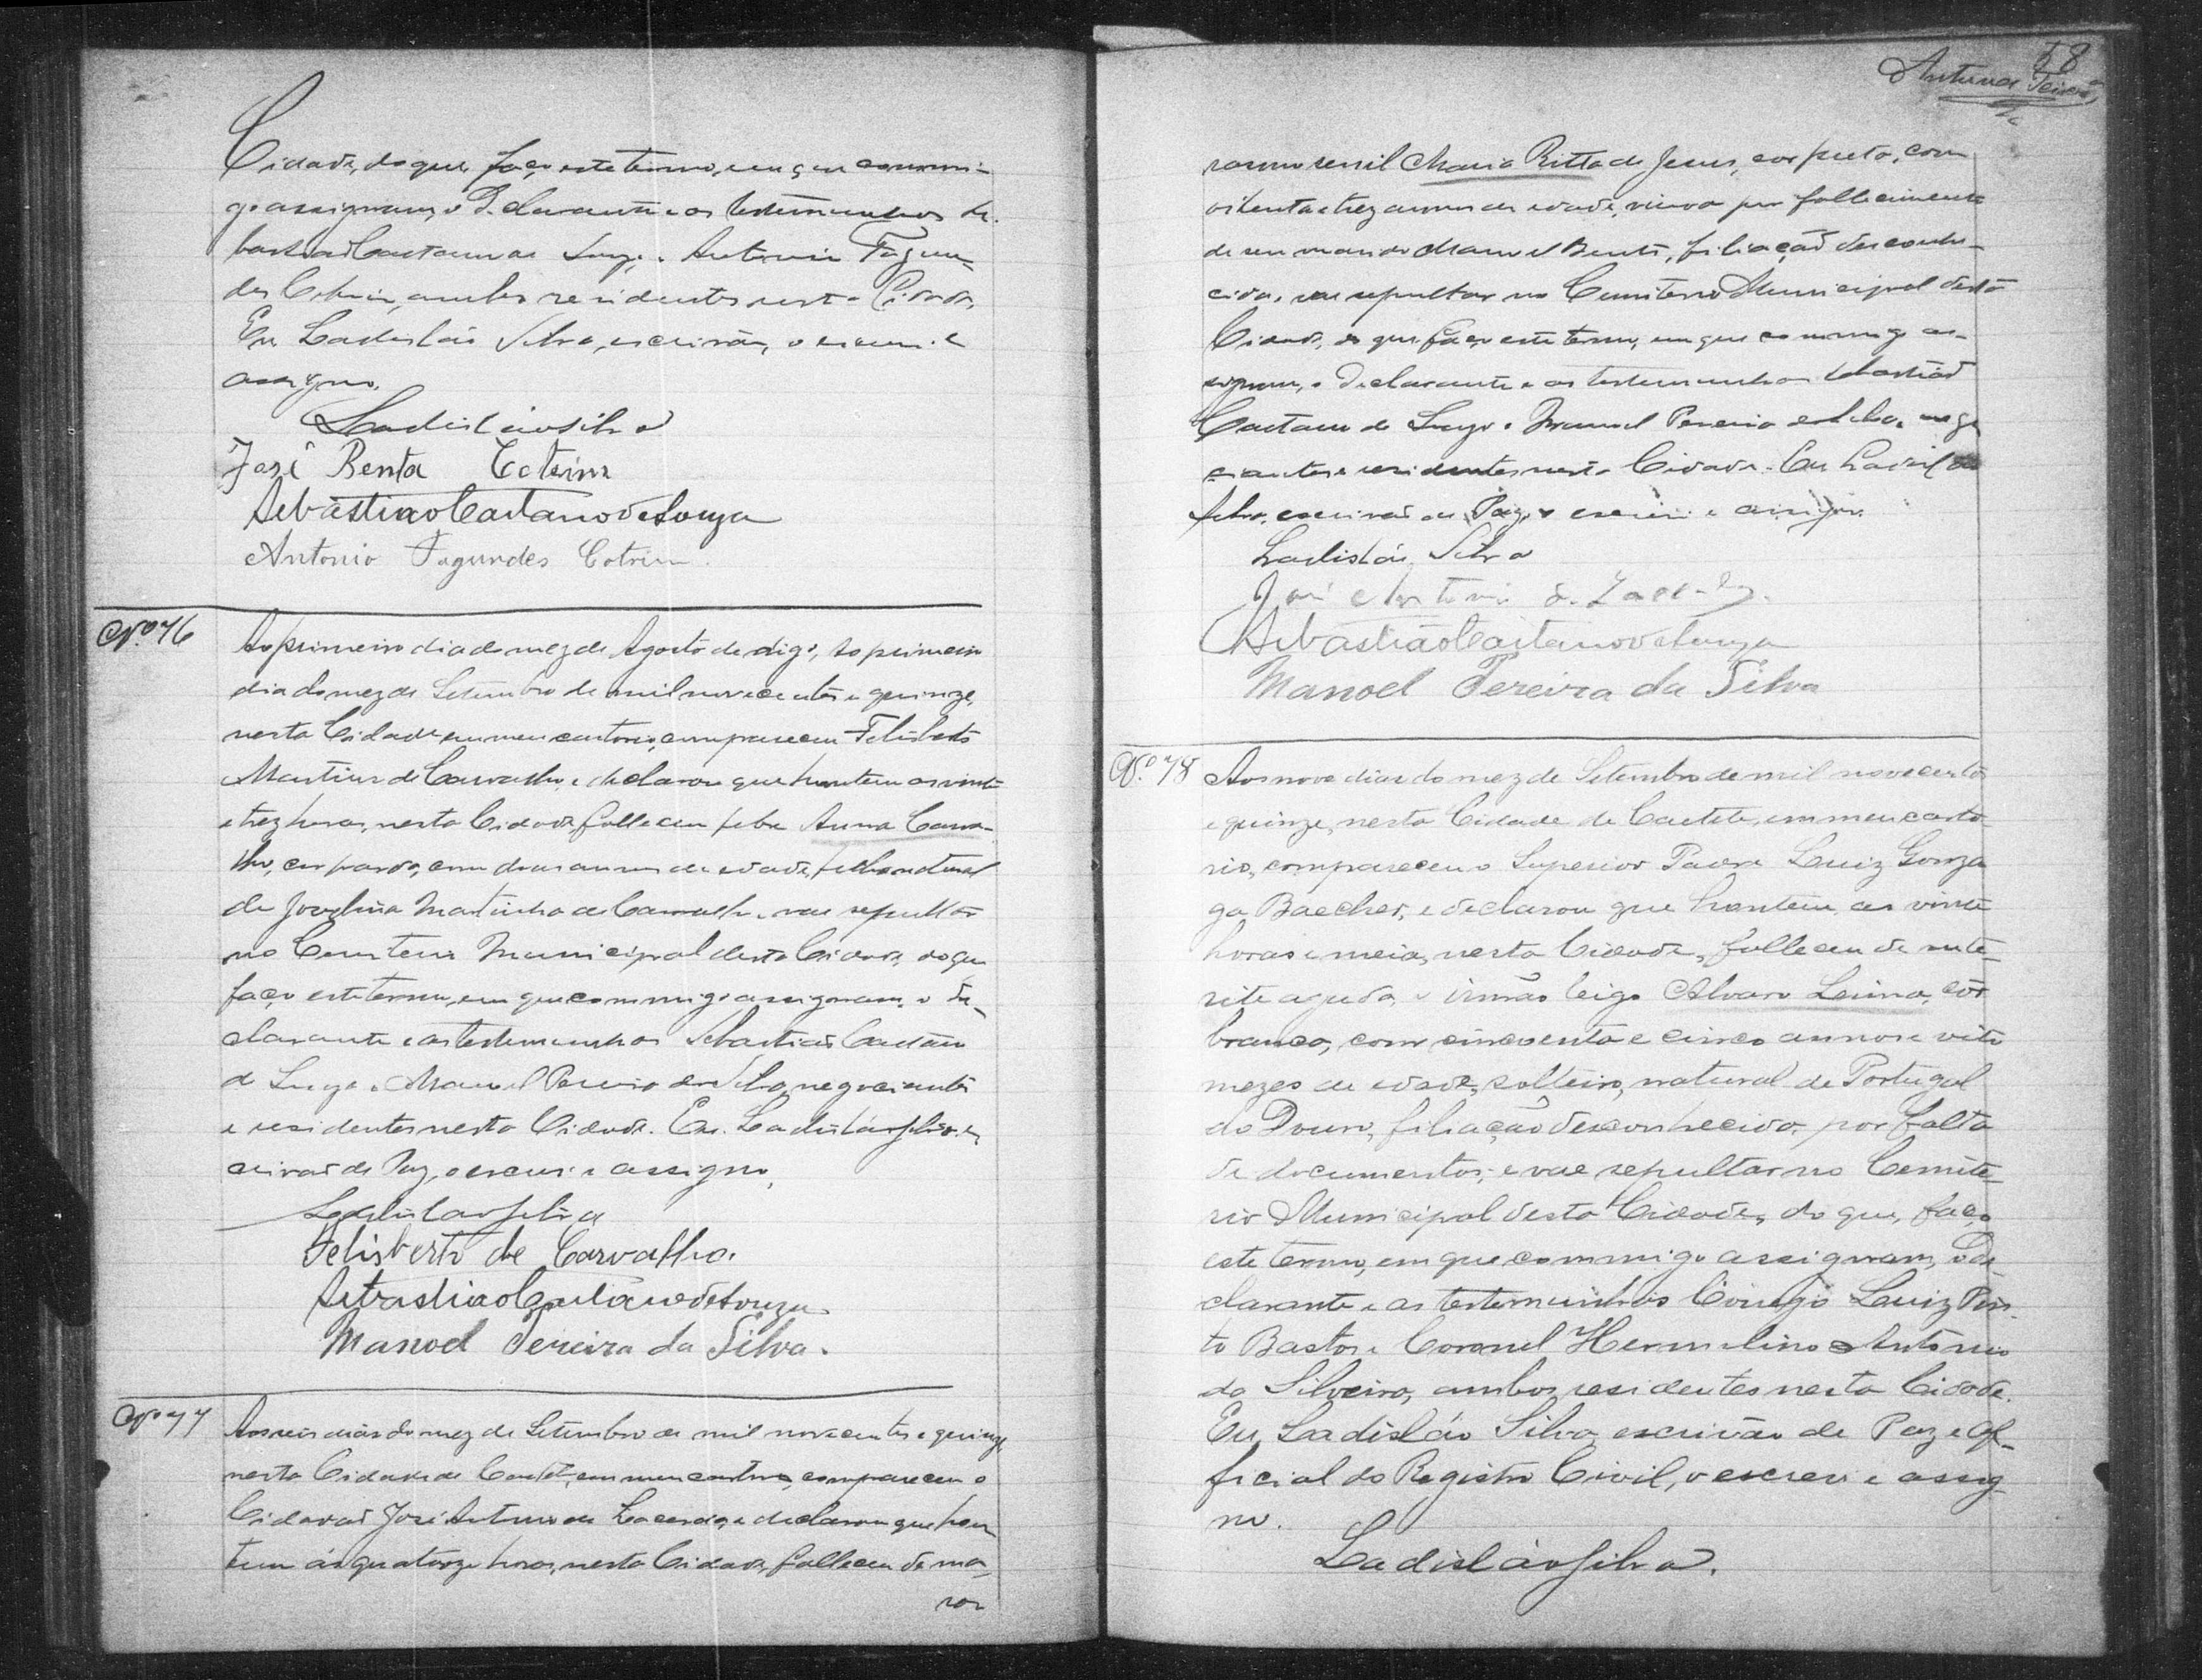 Cidade, do que, faço este termo, em que commi-
go assignam, o Declarante e as testemunhas Se-
bastião Caetano de Souza e Antonio Fagun-
des Cotrim, ambos residentes nesta Cidade,
Eu Ladisláo Silva, escrivão, o escrevi e
assigno.
Ladisláo Silva
José Benta Cotrim
Sebastião Caetano de Souza
Antonio Fagundes Cotrim.
Nº 76
Ao primeiro dia do mez de Agosto de digo, Ao primeiro
dia do mez de Setembro de mil novecentos e quinze,
nesta Cidade em meu cartorio, compareceu Felisberto
Martins de Carvalho, e declarou que hontem as vinte
e trez horas, nesta Cidade, falleceu febre Anna Carva-
lho, cor parda, com dous annos de edade, filha natural
de Jovelina Martinha de Carvalho, vae sepultar
no Cemiterio Municipal desta Cidade, do que
faço este termo, em que commigo assignam, o de-
clarante e as testemunhas Sebastião Caetano
de Souza e Manoel Pereira da Silva, negociantes
e residentes nesta Cidade. Eu Ladisláo Silva, es-
crivão de Paz, o escrevi e assigno,
Ladisláo Silva
Felisberto de Carvalho.
Sebastião Caetano de Souza
Manoel Pereira da Silva.
Nº 77
Aos seis dias do mez de Setembro de mil novecentos e quinze
nesta Cidade de Caeteté, em meu cartorio, compareceu o
Cidadão José Antonio de Lacerda, e declarou que hon-
tem ás quatorze horas, nesta Cidade, falleceu de ma-
ras
58
Antunes Teixeira
rasmo senil Maria Ritta de Jesus, cor preta, com
oitenta e trez annos de edade, viuva por fallecimento
de seu marido Manoel Bento, filiação desconhe-
cida, vae sepultar no Cemiterio Municipal desta
Cidade, do que faço este termo, em que commigo as-
signam, o Declarante e as testemunhas Sebastião
Caetano de Souza e Manoel Pereira da Silva, nego
ciantes e residentes nesta Cidade. Eu Ladisláo
Silva, escrivão de Paz, o escrevi e assigno.
Ladisláo Silva
José Antonio de Lacerda.
Sebastião Caetano de Souza
Manoel Pereira da Silva
Nº 78
Aos nove dias do mez de Setembro de mil novecentos
e quinze, nesta Cidade de Caeteté, em meu carto
rio, compareceu o Superior Padre Luiz Gonza
ga Baecher, e declarou que hontem, as vinte
horas e meia, nesta Cidade, falleceu de ente-
rite aguda, o irmão leigo Alvaro Leima, côr
branca, com cincoenta e cinco annos e oito
mezes de edade, solteiro, natural de Portugal
do Douro, filiação desconhecida, por falta
de documentos; e vae sepultar no Cemite-
rio Municipal desta Cidade, do que, faço
este termo, em que commigo assignam, o de-
clarante e as testemunhas Conego Luiz Pin-
to Bastos e Coronel Hermelino Antonio
da Silveira, ambos residentes nesta Cidade.
Eu Ladisláo Silva, escrivão de Paz e Of-
ficial do Registro Civil, o escrevi e assig-
no.
Ladisláo Silva.